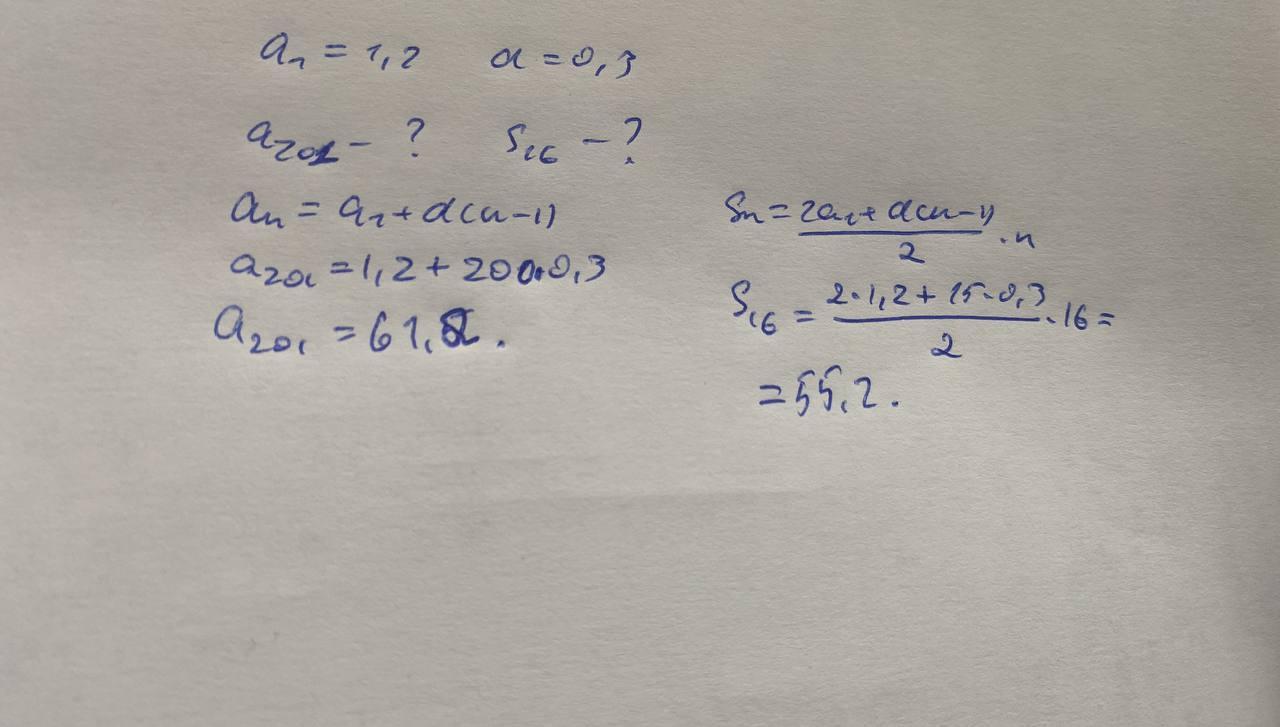 a₁ = 1,2 d = 0,3
a₂₀₁ - ? S₁₆ - ?
aₙ = a₁ + d(n-1)
a₂₀₁ = 1,2 + 200·0,3
a₂₀₁ = 61,2.
Sₙ = (2a₁ + d(n-1))/2 · n
S₁₆ = (2·1,2 + 15·0,3)/2 · 16 =
= 55,2.